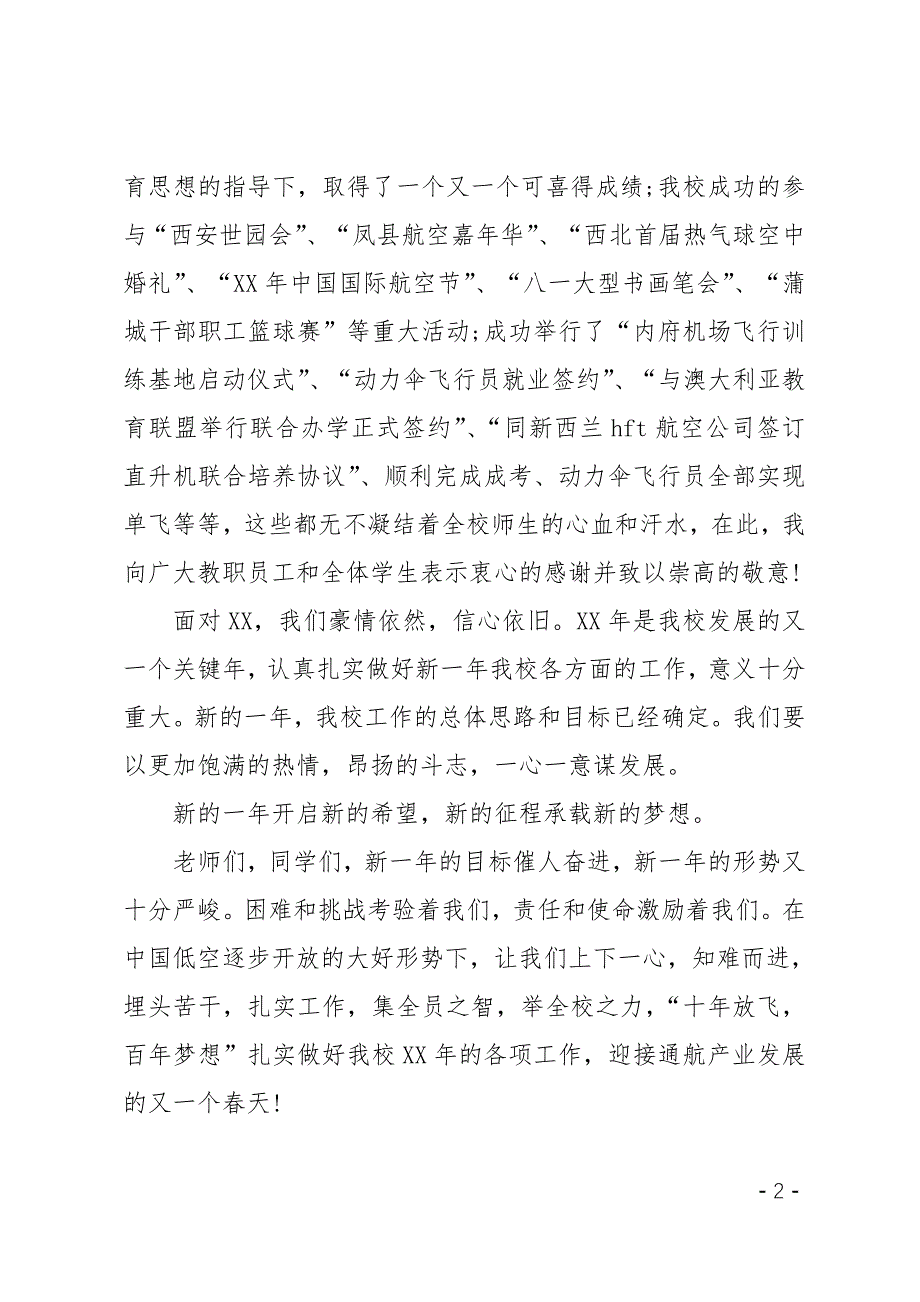 育思想的指导下，取得了一个又一个可喜得成绩;我校成功的参
与“西安世园会”、“凤县航空嘉年华”、“西北首届热气球空中
婚礼”、“XX 年中国国际航空节”、“八一大型书画笔会”、“蒲
城干部职工篮球赛”等重大活动;成功举行了“内府机场飞行训
练基地启动仪式”、“动力伞飞行员就业签约”、“与澳大利亚教
育联盟举行联合办学正式签约”、“同新西兰 hft 航空公司签订
直升机联合培养协议”、顺利完成成考、动力伞飞行员全部实现
单飞等等，这些都无不凝结着全校师生的心血和汗水，在此，我
向广大教职员工和全体学生表示衷心的感谢并致以崇高的敬意!
面对 XX，我们豪情依然，信心依旧。XX 年是我校发展的又
一个关键年，认真扎实做好新一年我校各方面的工作，意义十分
重大。新的一年，我校工作的总体思路和目标已经确定。我们要
以更加饱满的热情，昂扬的斗志，一心一意谋发展。
新的一年开启新的希望，新的征程承载新的梦想。
老师们，同学们，新一年的目标催人奋进，新一年的形势又
十分严峻。困难和挑战考验着我们，责任和使命激励着我们。在
中国低空逐步开放的大好形势下，让我们上下一心，知难而进，
埋头苦干，扎实工作，集全员之智，举全校之力，“十年放飞，
百年梦想”扎实做好我校 XX 年的各项工作，迎接通航产业发展
的又一个春天!
- 2 -